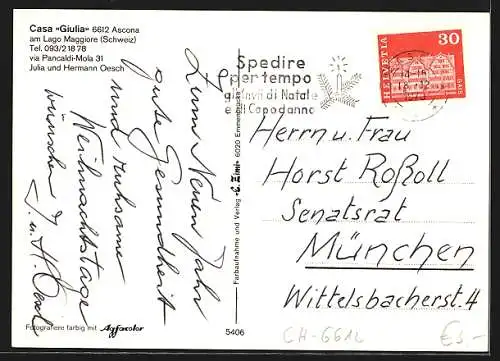 Casa «Giulia» 6612 Ascona
am Lago Maggiore (Schweiz)
Tel. 093/2 18 78
via Pancaldi-Mola 31
Julia und Hermann Oesch
Zum Neuen Jahr
gute Gesundheit
und ruhsame
Weihnachtstage
wünschen
J. u. H. Oesch
Fotografiere farbig mit Agfacolor
5406
Farbaufnahme und Verlag
6020 Emmenbrücke
Spedire
per tempo
gli invii di Natale
e di Capodanno
HELVETIA
30
Herrn u. Frau
Horst Roßoll
Senatsrat
München
Wittelsbacherst. 4
CH-6612